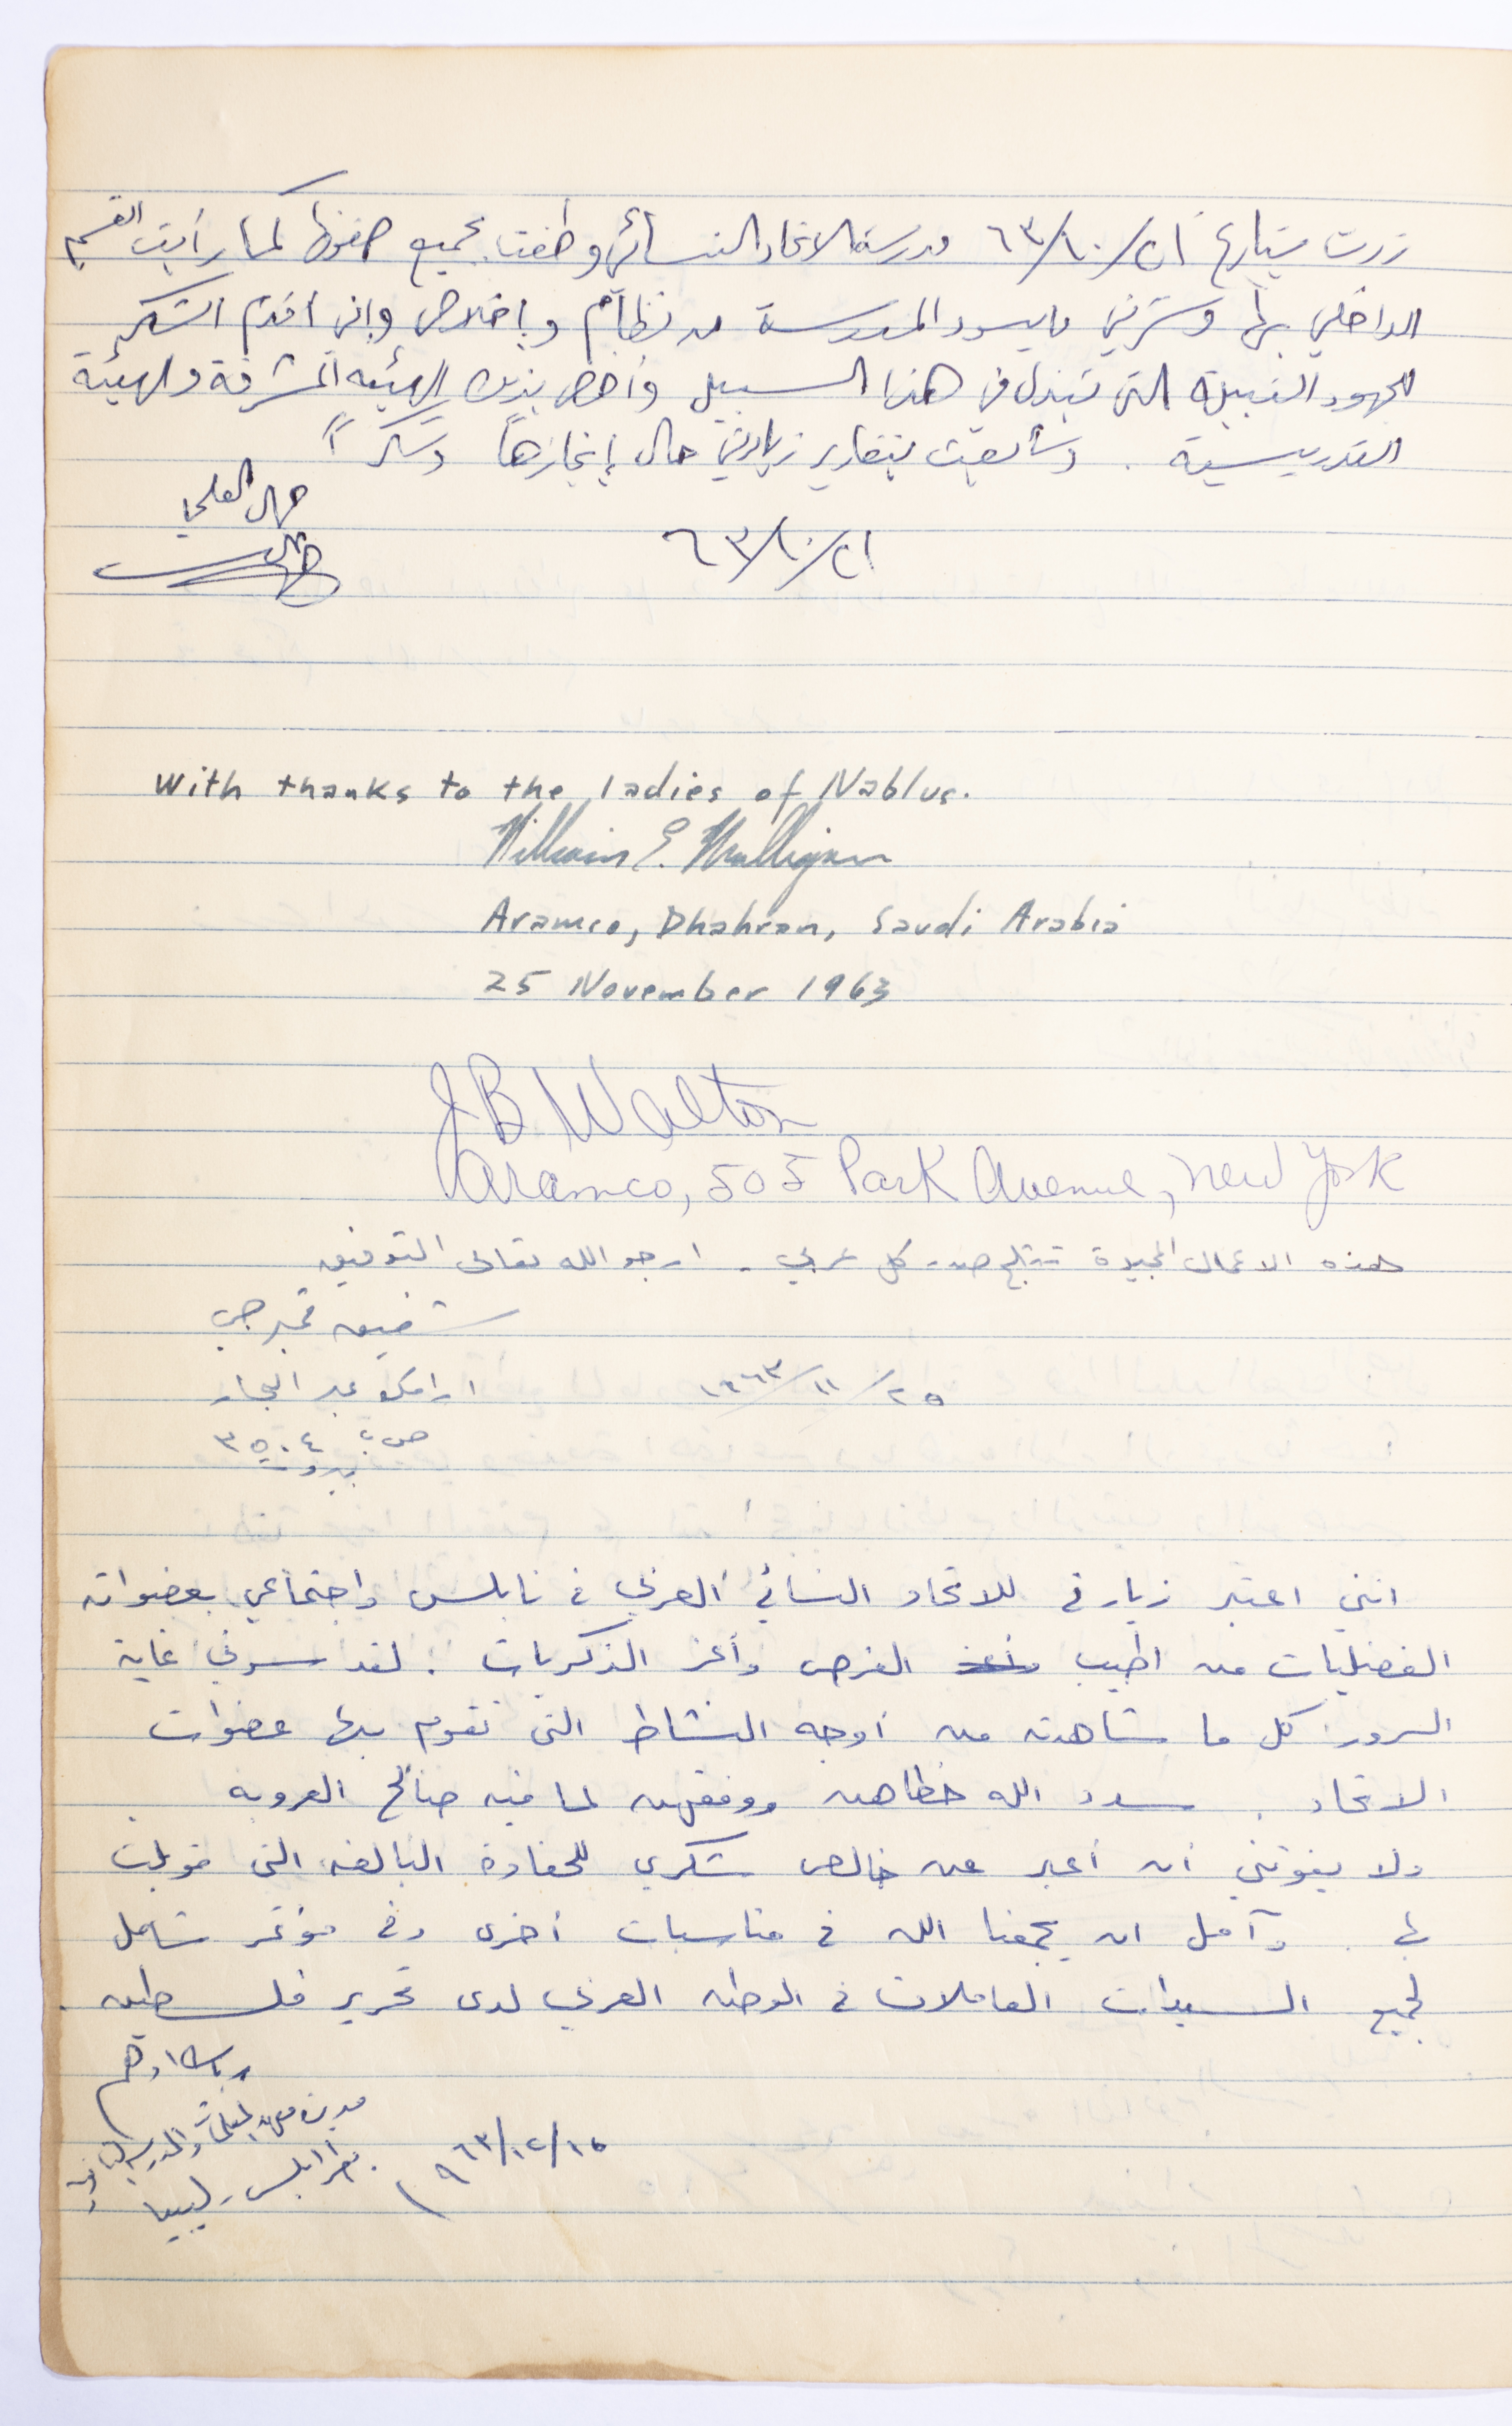 زرت بتاريخ ٦٣/١٠/٢١ مدرسة الاتحاد النسائي وطفت بجميع صفوفها كما رأيت القسم
الداخلي بها وسرني ما يسود المدرسة من نظام وإخلاص وإني أقدم الشكر
للجهود النبيلة التي تبذل في هذا السبيل وأخص بذلك الهيئة المشرفة والهيئة
التدريسية . وسأبعث بتقارير زيارتي حال إنجازها وشكراً
العلمي
٦٣/١٠/٢١
With thanks to the ladies of Nablus.
William E. Mulligan
Aramco, Dhahran, Saudi Arabia
25 November 1963
JB Walton
Aramco, 505 Park Avenue, New York
هذه الاعمال المجيدة تثلج صدر كل عربي . ارجو الله تعالى التوفيق
شفيق قمبرجي
ارامكو عبر البحار
٢٥/١١/١٩٦٣
ص ب ٣٥٠٤
بيروت
انني اعتبر زيارتي للاتحاد النسائي العربي في نابلس واجتماعي بعضواته
الفضليات من اطيب الفرص وأعز الذكريات . لقد سرني غاية
السرور كل ما شاهدته من أوجه النشاط التي تقوم بها عضوات
الاتحاد . سدد الله خطاهن ووفقهن لما فيه صالح العروبة
ولا يفوتني أن أعبر عن خالص شكري للحفاوة البالغة التي قوبلت
بها . وآمل ان يجمعنا الله في مناسبات أخرى وفي مؤتمر شامل
لجميع السيدات العاملات في الوطن العربي لدى تحرير فلسطين .
رباب ادهم
مديرة معهد المعلمات
طرابلس - ليبيا
١٩٦٣/١٢/١٥